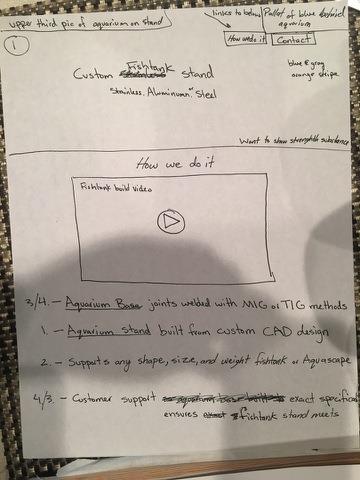 upper third pic of aquarium on stand
links to below
Pallet of blue
aquarium
1
How we do it
Contact
blue & gray
orange stripe
Custom Fishtank stand
"Stainless. Aluminum. Steel"
Want to show strength & substance
How we do it
Fishtank build video
3/4. - Aquarium Base joints welded with MIG or TIG methods
1. - Aquarium stand built from custom CAD design
2. - Supports any shape, size, and weight fishtank or Aquascape
4/3. - Customer support exact specific
ensures fishtank stand meets